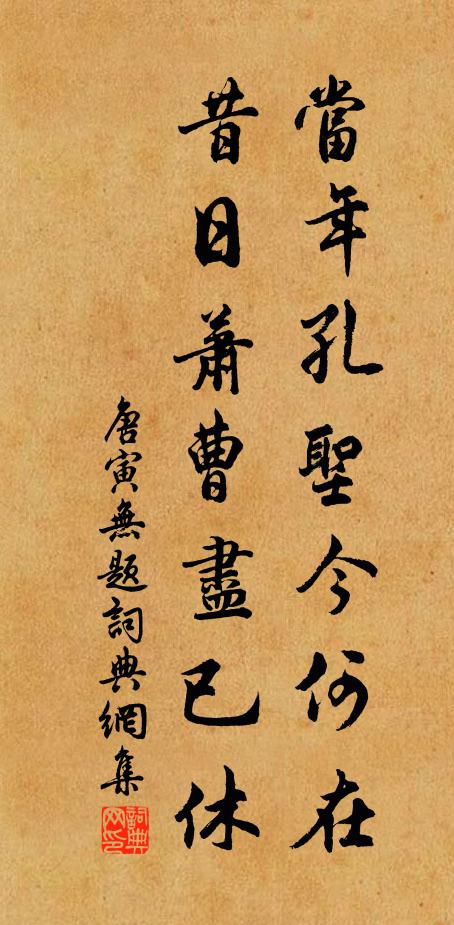 當年孔聖今何在
昔日蕭曹盡已休
唐寅無題詞典網集
詞典网印